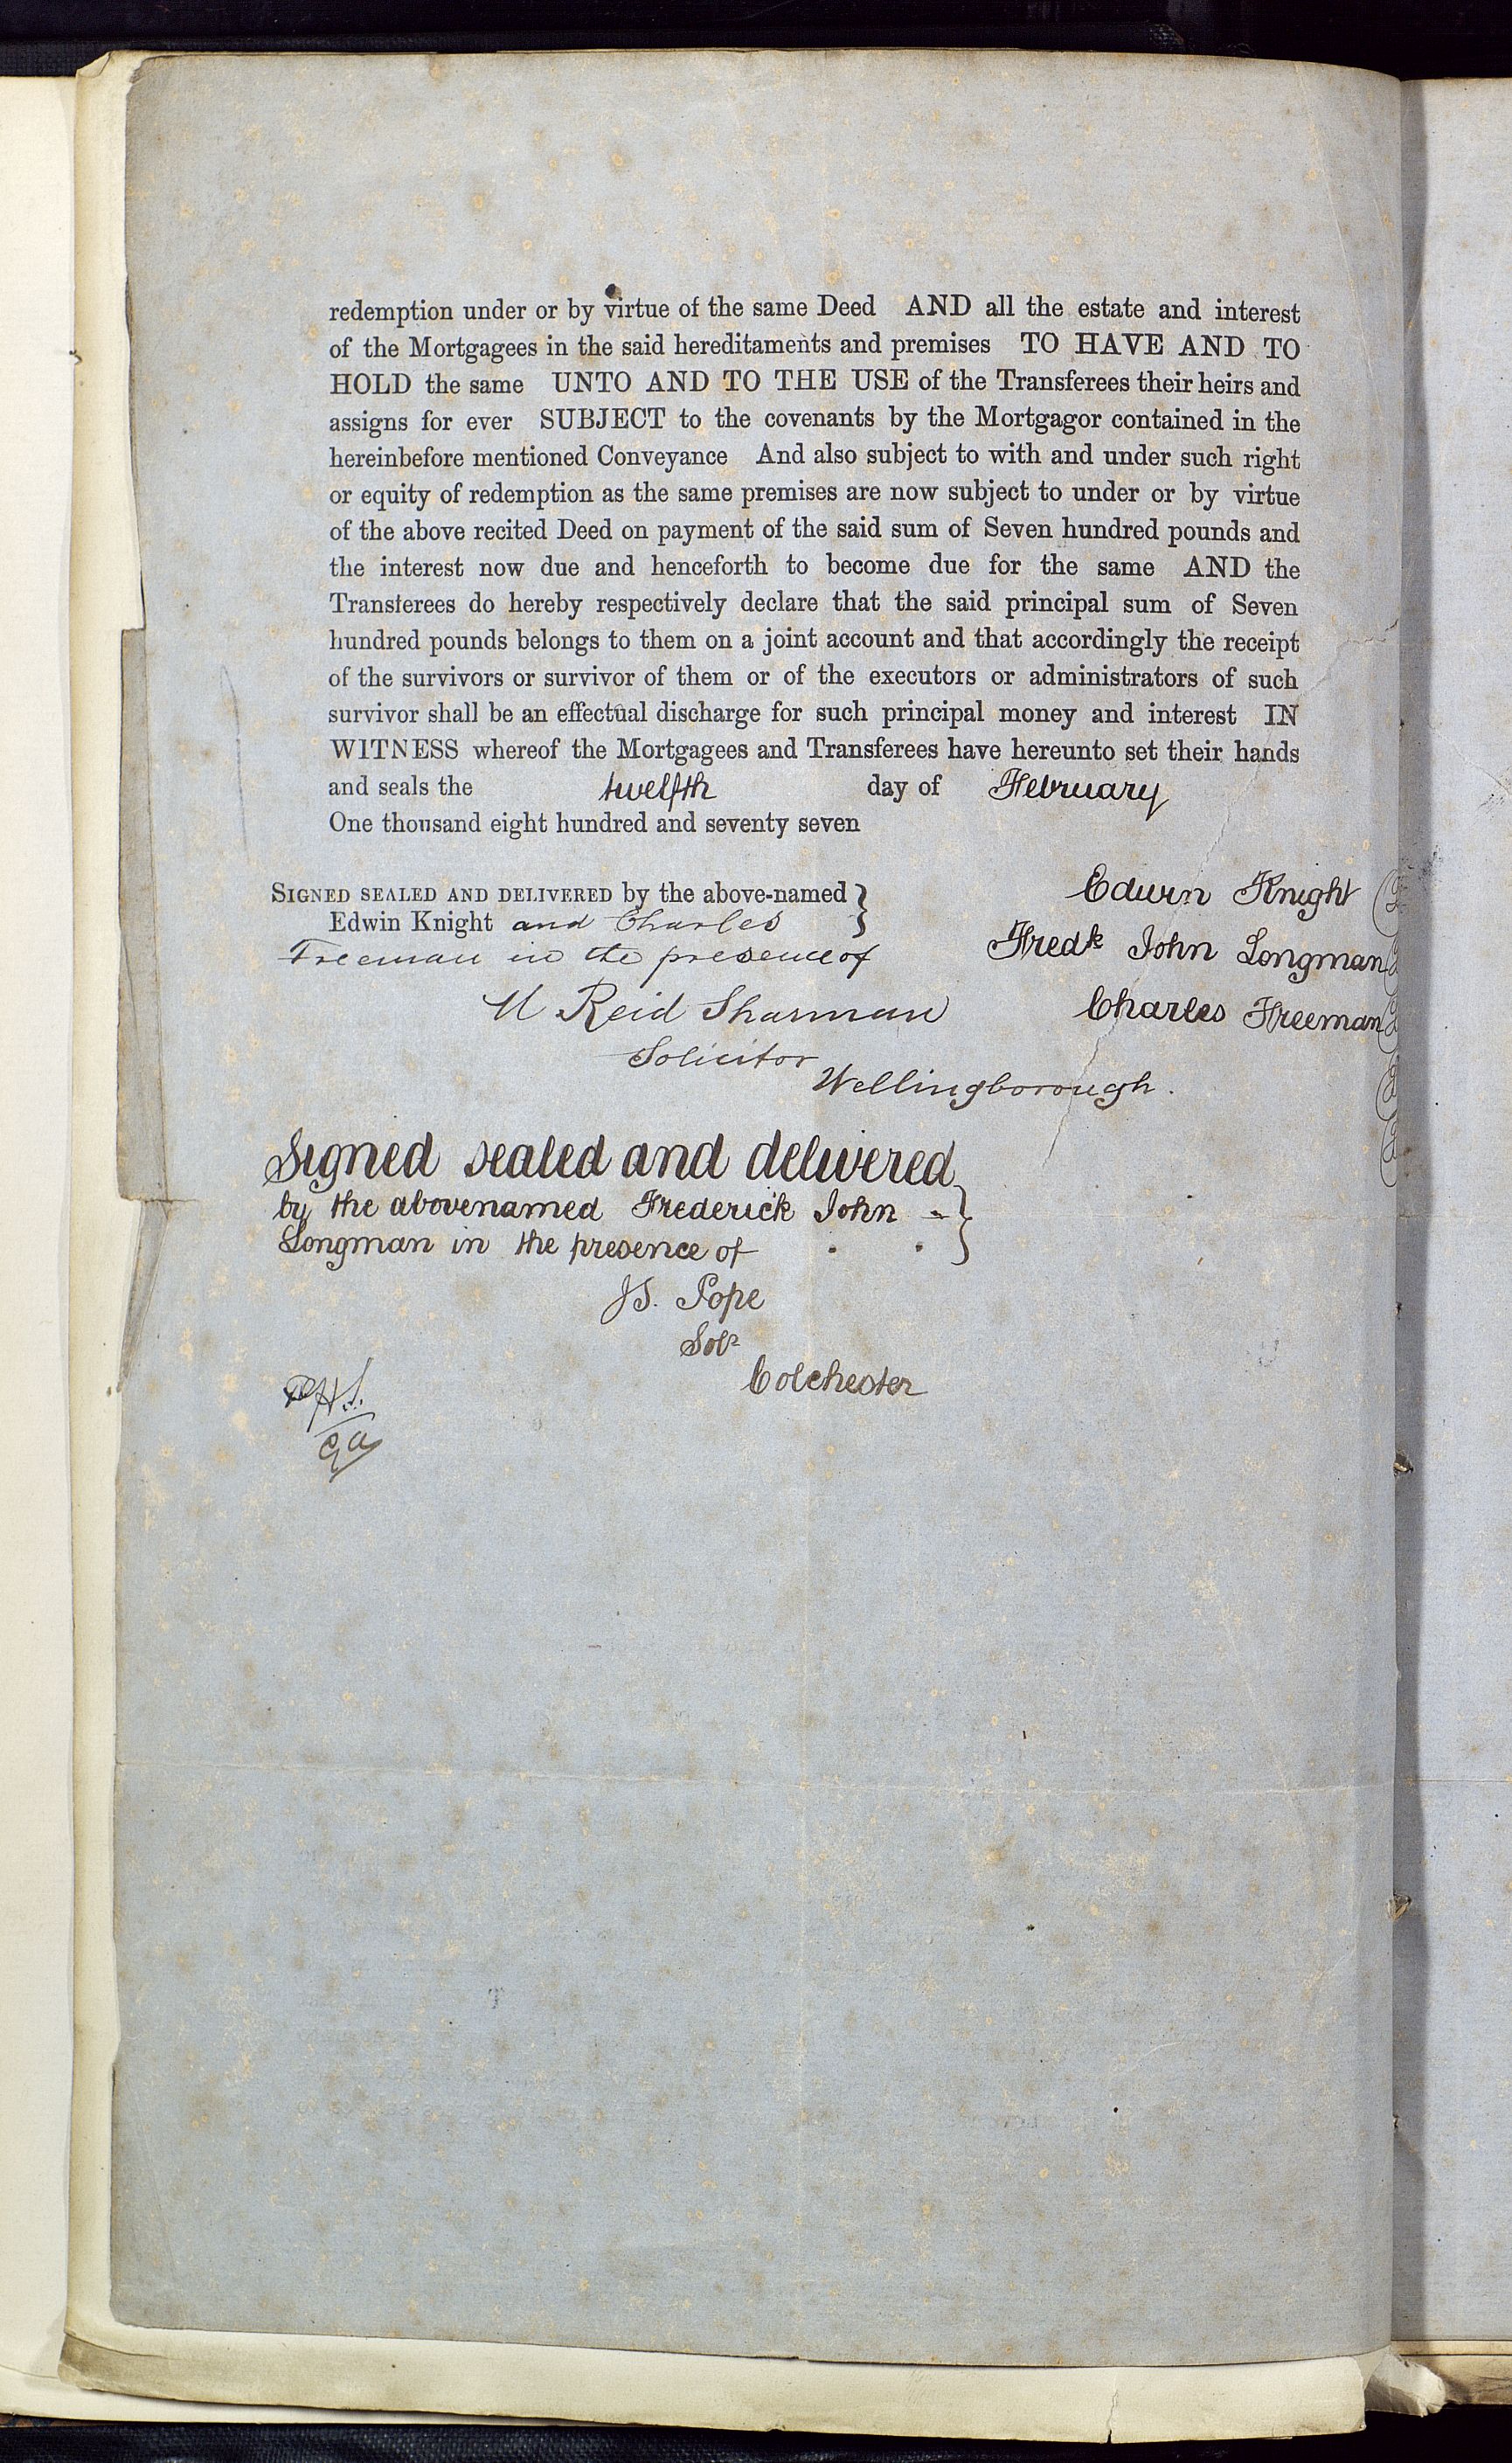 redemption under or by virtue of the same Deed AND all the estate and interest
of the Mortgagees in the said hereditaments and premises TO HAVE AND TO
HOLD the same UNTO AND TO THE USE of the Transferees their heirs and
assigns for ever SUBJECT to the covenants by the Mortgagor contained in the
hereinbefore mentioned Conveyance And also subject to with and under such right
or equity of redemption as the same premises are now subject to under or by virtue
of the above recited Deed on payment of the said sum of Seven hundred pounds and
the interest now due and henceforth to become due for the same AND the
Transferees do hereby respectively declare that the said principal sum of Seven
hundred pounds belongs to them on a joint account and that accordingly the receipt
of the survivors or survivor of them or of the executors or administrators of such
survivor shall be an effectual discharge for such principal money and interest IN
WITNESS whereof the Mortgagees and Transferees have hereunto set their hands
and seals the twelfth day of February
One thousand eight hundred and seventy seven
SIGNED SEALED AND DELIVERED by the above-named
Edwin Knight and Charles
Freeman in the presence of
Reid Sharman
Solicitor
Wellingborough.
Edwin Knight
Fredk John Longman
Charles Freeman
Signed sealed and delivered
by the abovenamed Frederick John
Longman in the presence of
Pope
Solr
Colchester